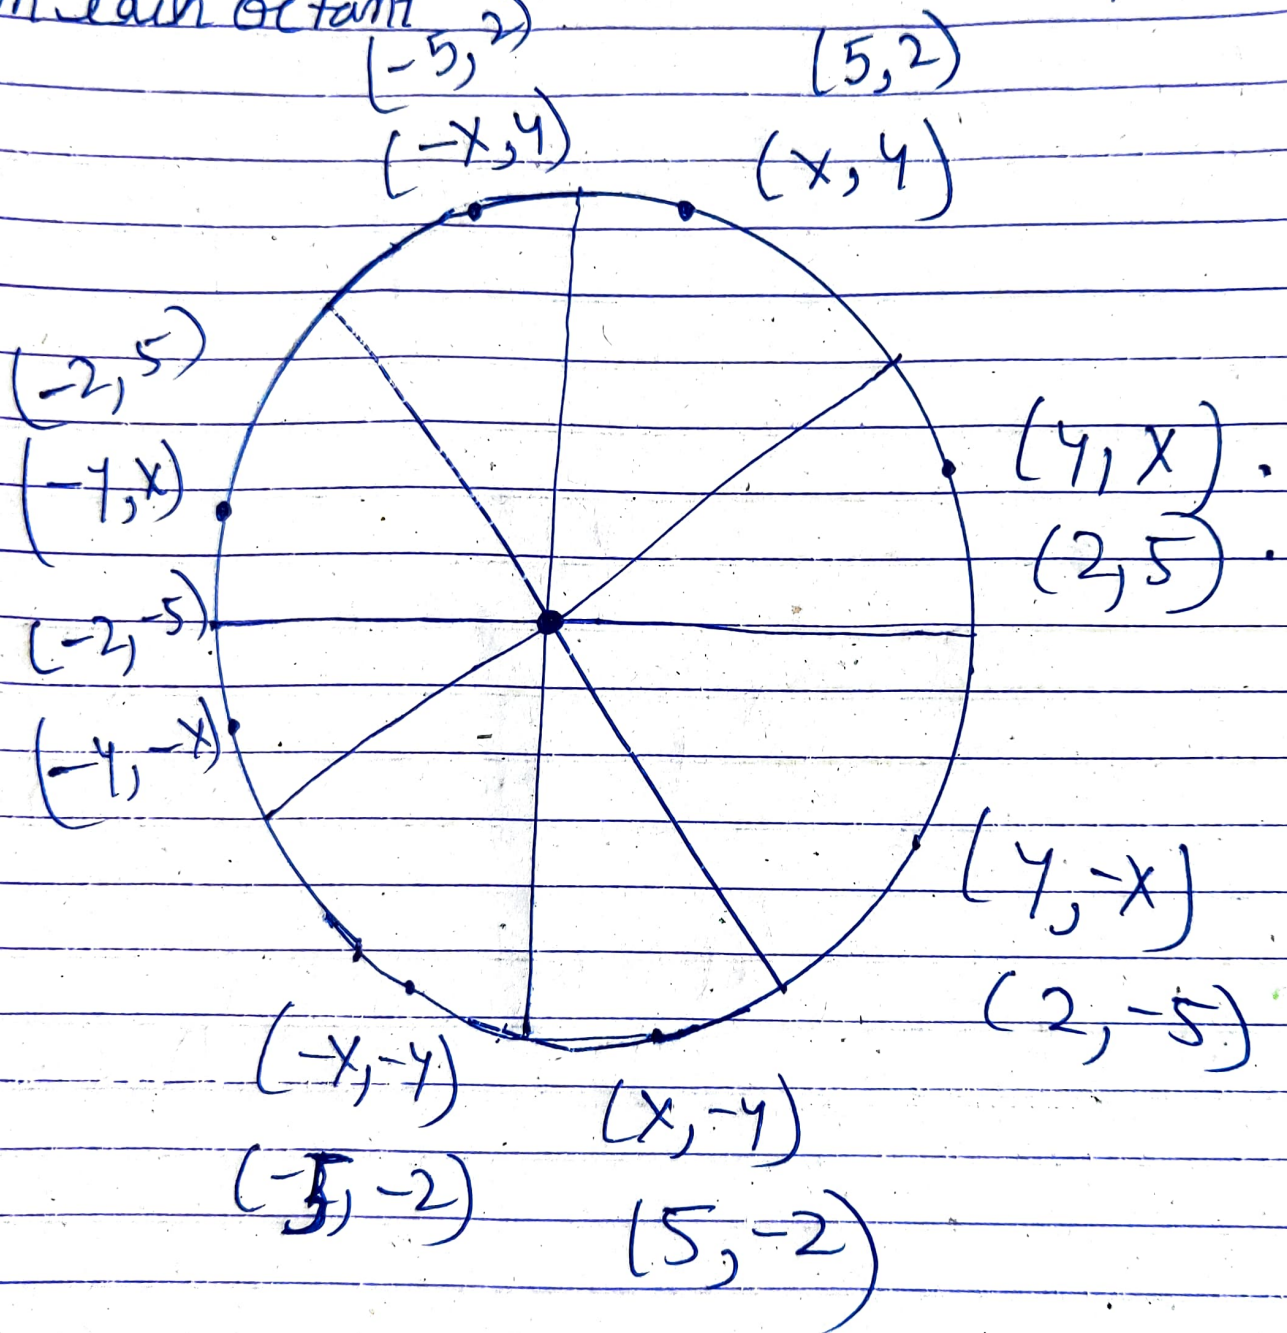 in each octant
(-5, 2)
(5, 2)
(-x, y)
(x, y)
(-2, 5)
(-y, x)
(y, x)
(2, 5)
(-2, -5)
(-y, -x)
(y, -x)
(2, -5)
(-x, -y)
(x, -y)
(-5, -2)
(5, -2)